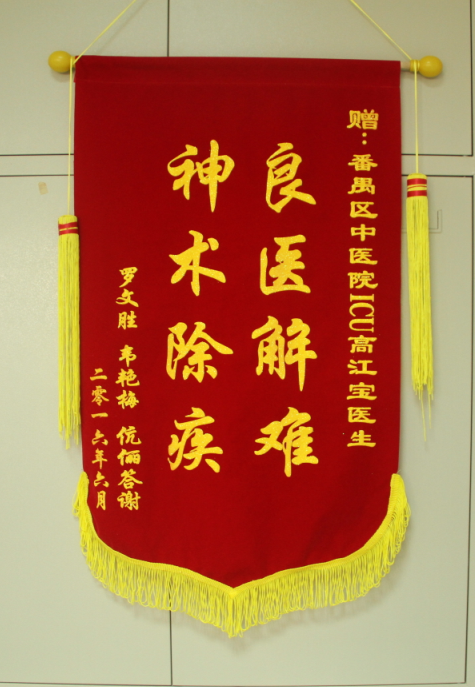 赠：番禺区中医院ICU高江宝医生
良医解难
神术除疾
罗文胜 韦艳梅 伉俪答谢
二零一六年六月